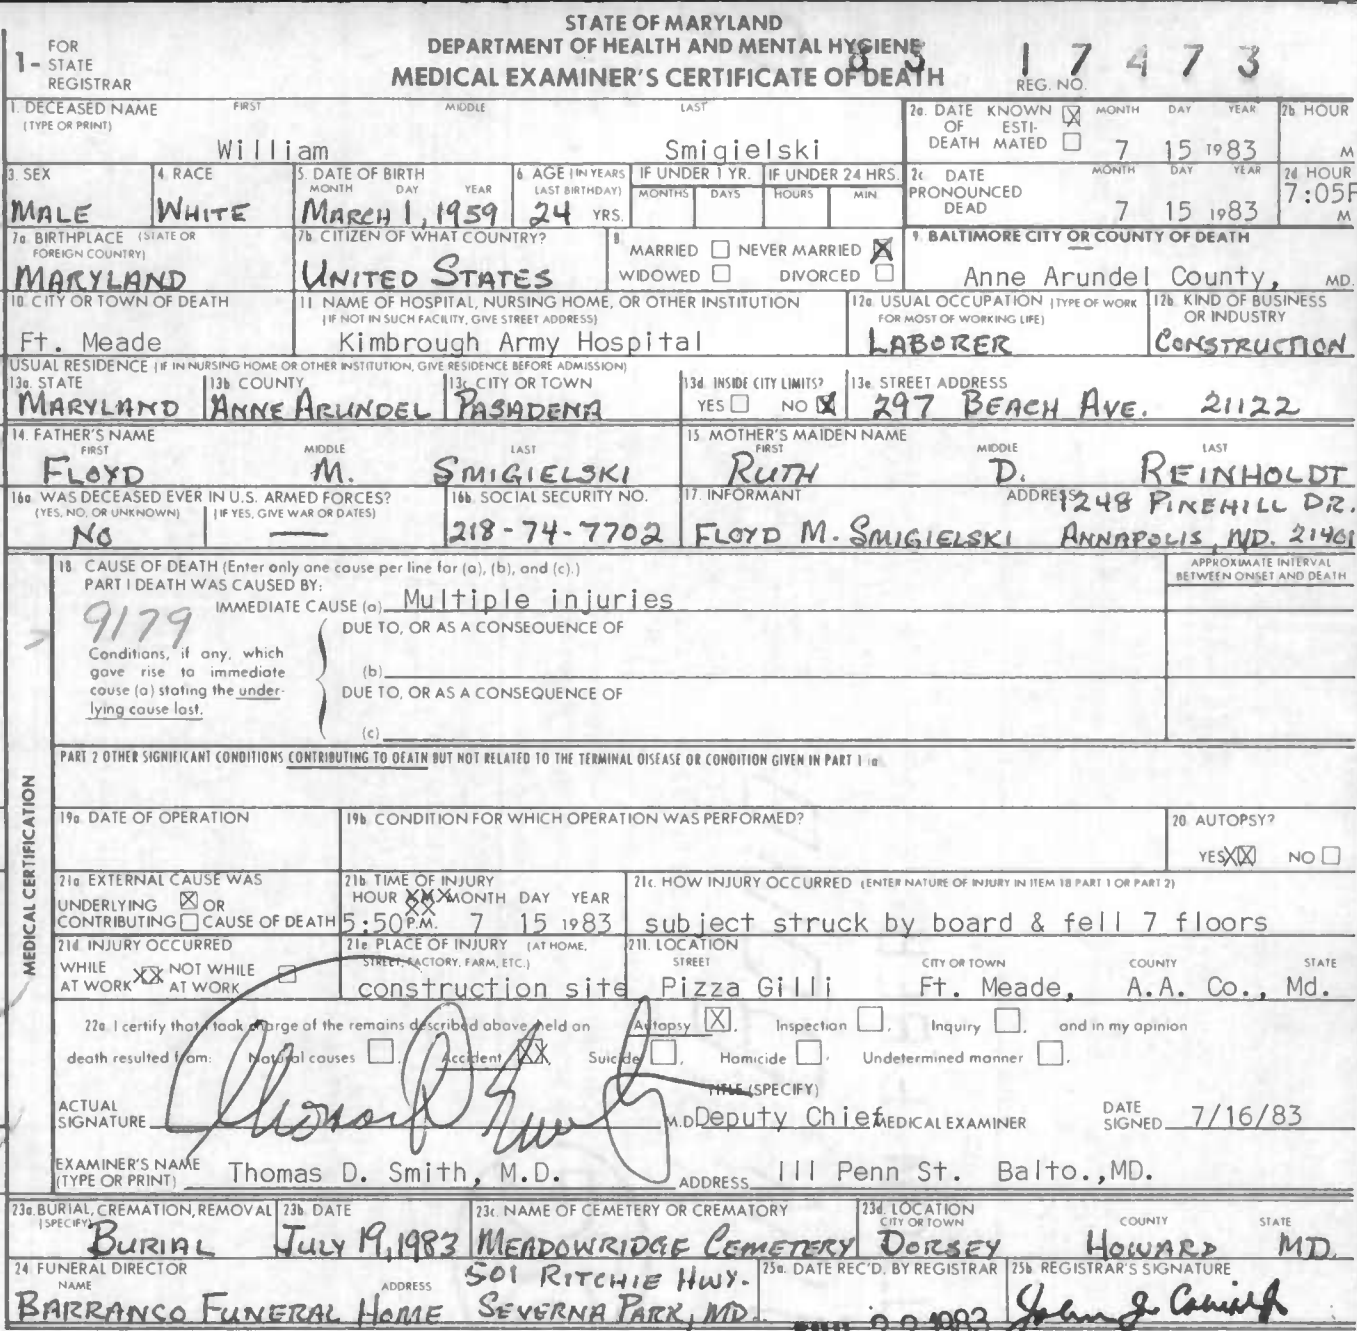 STATE OF MARYLAND
DEPARTMENT OF HEALTH AND MENTAL HYGIENE
MEDICAL EXAMINER'S CERTIFICATE OF DEATH
1- FOR STATE REGISTRAR
83 17473
REG. NO.
1. DECEASED NAME (TYPE OR PRINT) FIRST MIDDLE LAST
William Smigielski
2a. DATE OF DEATH KNOWN ☒ ESTIMATED ☐ MONTH DAY YEAR
7 15 1983
2b HOUR
M
3. SEX
MALE
4. RACE
WHITE
5. DATE OF BIRTH MONTH DAY YEAR
MARCH 1, 1959
6. AGE (IN YEARS LAST BIRTHDAY)
24 YRS.
IF UNDER 1 YR. MONTHS DAYS
IF UNDER 24 HRS. HOURS MIN
2c DATE PRONOUNCED DEAD MONTH DAY YEAR
7 15 1983
2d HOUR
7:05P M
7a BIRTHPLACE (STATE OR FOREIGN COUNTRY)
MARYLAND
7b CITIZEN OF WHAT COUNTRY?
UNITED STATES
8 MARRIED ☐ NEVER MARRIED ☒
WIDOWED ☐ DIVORCED ☐
9. BALTIMORE CITY OR COUNTY OF DEATH
Anne Arundel County, MD.
10 CITY OR TOWN OF DEATH
Ft. Meade
11 NAME OF HOSPITAL, NURSING HOME, OR OTHER INSTITUTION
(IF NOT IN SUCH FACILITY, GIVE STREET ADDRESS)
Kimbrough Army Hospital
12a USUAL OCCUPATION (TYPE OF WORK FOR MOST OF WORKING LIFE)
LABORER
12b. KIND OF BUSINESS OR INDUSTRY
CONSTRUCTION
USUAL RESIDENCE (IF IN NURSING HOME OR OTHER INSTITUTION, GIVE RESIDENCE BEFORE ADMISSION)
13a. STATE
MARYLAND
13b COUNTY
ANNE ARUNDEL
13c. CITY OR TOWN
PASADENA
13d. INSIDE CITY LIMITS?
YES ☐ NO ☒
13e STREET ADDRESS
297 BEACH AVE. 21122
14. FATHER'S NAME
FIRST MIDDLE LAST
FLOYD M. SMIGIELSKI
15 MOTHER'S MAIDEN NAME
FIRST MIDDLE LAST
RUTH D. REINHOLDT
16a WAS DECEASED EVER IN U.S. ARMED FORCES?
(YES, NO, OR UNKNOWN) (IF YES, GIVE WAR OR DATES)
NO —
16b. SOCIAL SECURITY NO.
218-74-7702
17. INFORMANT ADDRESS
FLOYD M. SMIGIELSKI
1248 PINEHILL DR.
ANNAPOLIS, MD. 21401
18 CAUSE OF DEATH (Enter only one cause per line for (a), (b), and (c).)
APPROXIMATE INTERVAL BETWEEN ONSET AND DEATH
PART I DEATH WAS CAUSED BY:
IMMEDIATE CAUSE (a) Multiple injuries
9179
DUE TO, OR AS A CONSEQUENCE OF
Conditions, if any, which gave rise to immediate cause (a) stating the underlying cause last.
(b)
DUE TO, OR AS A CONSEQUENCE OF
(c)
PART 2 OTHER SIGNIFICANT CONDITIONS CONTRIBUTING TO DEATH BUT NOT RELATED TO THE TERMINAL DISEASE OR CONDITION GIVEN IN PART 1 (a)
MEDICAL CERTIFICATION
19a. DATE OF OPERATION
19b. CONDITION FOR WHICH OPERATION WAS PERFORMED?
20 AUTOPSY?
YES ☒ NO ☐
21a EXTERNAL CAUSE WAS
UNDERLYING ☒ OR
CONTRIBUTING ☐ CAUSE OF DEATH
21b TIME OF INJURY
HOUR MONTH DAY YEAR
5:50 P.M. 7 15 1983
21c. HOW INJURY OCCURRED (ENTER NATURE OF INJURY IN ITEM 18 PART 1 OR PART 2)
subject struck by board & fell 7 floors
21d INJURY OCCURRED
WHILE AT WORK XX NOT WHILE AT WORK ☐
21e PLACE OF INJURY (AT HOME, STREET, FACTORY, FARM, ETC.)
construction site
21f. LOCATION
STREET CITY OR TOWN COUNTY STATE
Pizza Gilli Ft. Meade, A.A. Co., Md.
22a I certify that I took charge of the remains described above, held an Autopsy ☒, Inspection ☐, Inquiry ☐, and in my opinion
death resulted from: Natural causes ☐, Accident ☒, Suicide ☐, Homicide ☐, Undetermined manner ☐.
TITLE (SPECIFY)
ACTUAL SIGNATURE M.D. Deputy Chief MEDICAL EXAMINER DATE SIGNED 7/16/83
EXAMINER'S NAME (TYPE OR PRINT) Thomas D. Smith, M.D. ADDRESS 111 Penn St. Balto.,MD.
23a. BURIAL, CREMATION, REMOVAL (SPECIFY)
BURIAL
23b. DATE
JULY 19, 1983
23c. NAME OF CEMETERY OR CREMATORY
MEADOWRIDGE CEMETERY
23d. LOCATION
CITY OR TOWN COUNTY STATE
DORSEY HOWARD MD.
24 FUNERAL DIRECTOR
NAME ADDRESS
BARRANCO FUNERAL HOME
501 RITCHIE HWY.
SEVERNA PARK, MD.
25a. DATE REC'D. BY REGISTRAR
22 1983
25b. REGISTRAR'S SIGNATURE
John J.